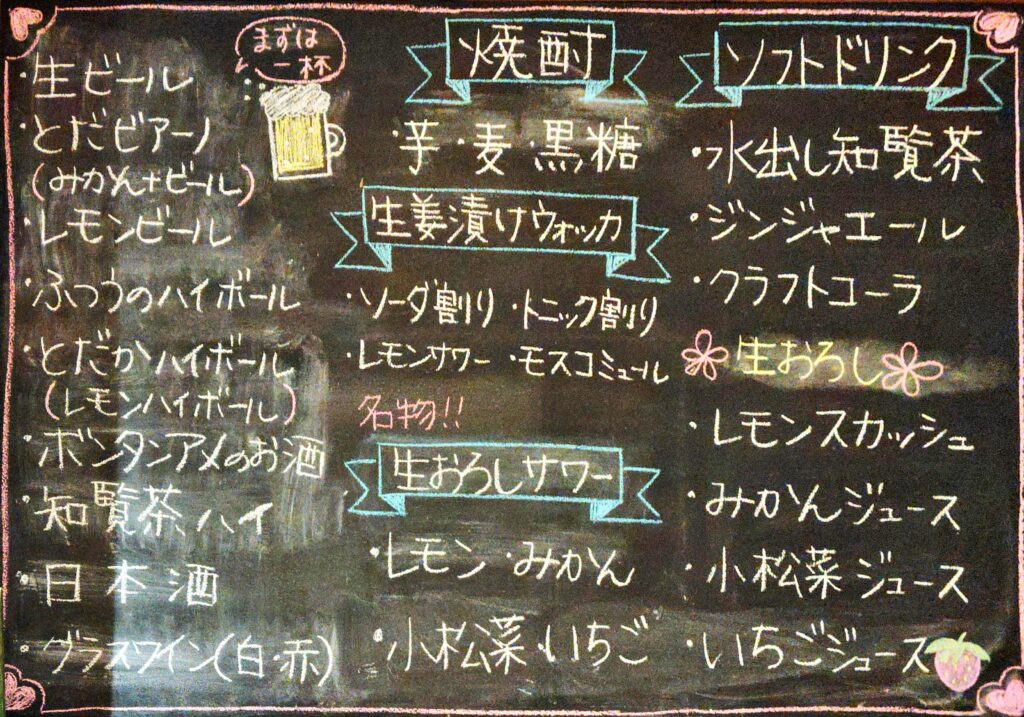 まずは
一杯
・生ビール
・とだビアーノ
(みかん+ビール)
・レモンビール
・ふつうのハイボール
・とだかハイボール
(レモンハイボール)
・ボンタンアメのお酒
・知覧茶ハイ
・日本酒
・グラスワイン(白・赤)
焼酎
・芋・麦・黒糖
生姜漬けウォッカ
・ソーダ割り ・トニック割り
・レモンサワー ・モスコミュール
名物!!
生おろしサワー
・レモン ・みかん
・小松菜・いちご
ソフトドリンク
・水出し知覧茶
・ジンジャエール
・クラフトコーラ
生おろし
・レモンスカッシュ
・みかんジュース
・小松菜ジュース
・いちごジュース